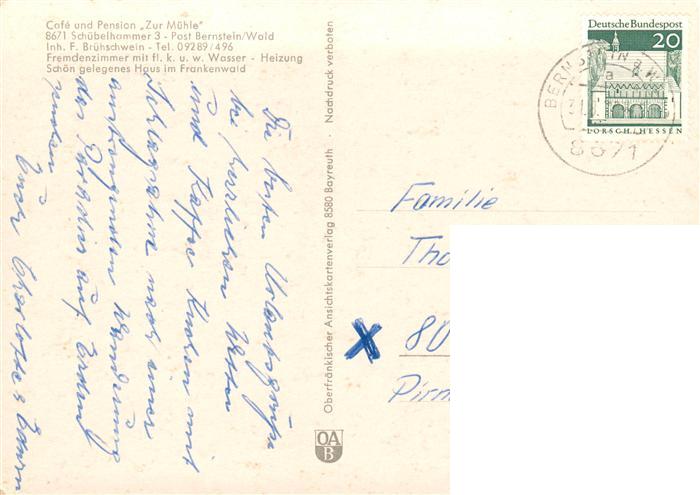 Café und Pension „Zur Mühle"
8671 Schübelhammer 3 - Post Bernstein/Wald
Inh. F. Brühschwein - Tel. 09289/496
Fremdenzimmer mit fl. k. u. w. Wasser - Heizung
Schön gelegenes Haus im Frankenwald
Die besten Urlaubsgrüße
bei herrlichen Wetter
und Kaffee Kuchen mit
Schlagsahne nach einer
anstrengenden Wanderung
das Paradies auf Erden!
Eure Charlotte &
Oberfränkischer Ansichtskartenverlag 8580 Bayreuth · Nachdruck verboten
OA
B
Deutsche Bundespost
20
LORSCH/HESSEN
BERNSTEIN
a
8671
Familie
Tho
80
Pirm